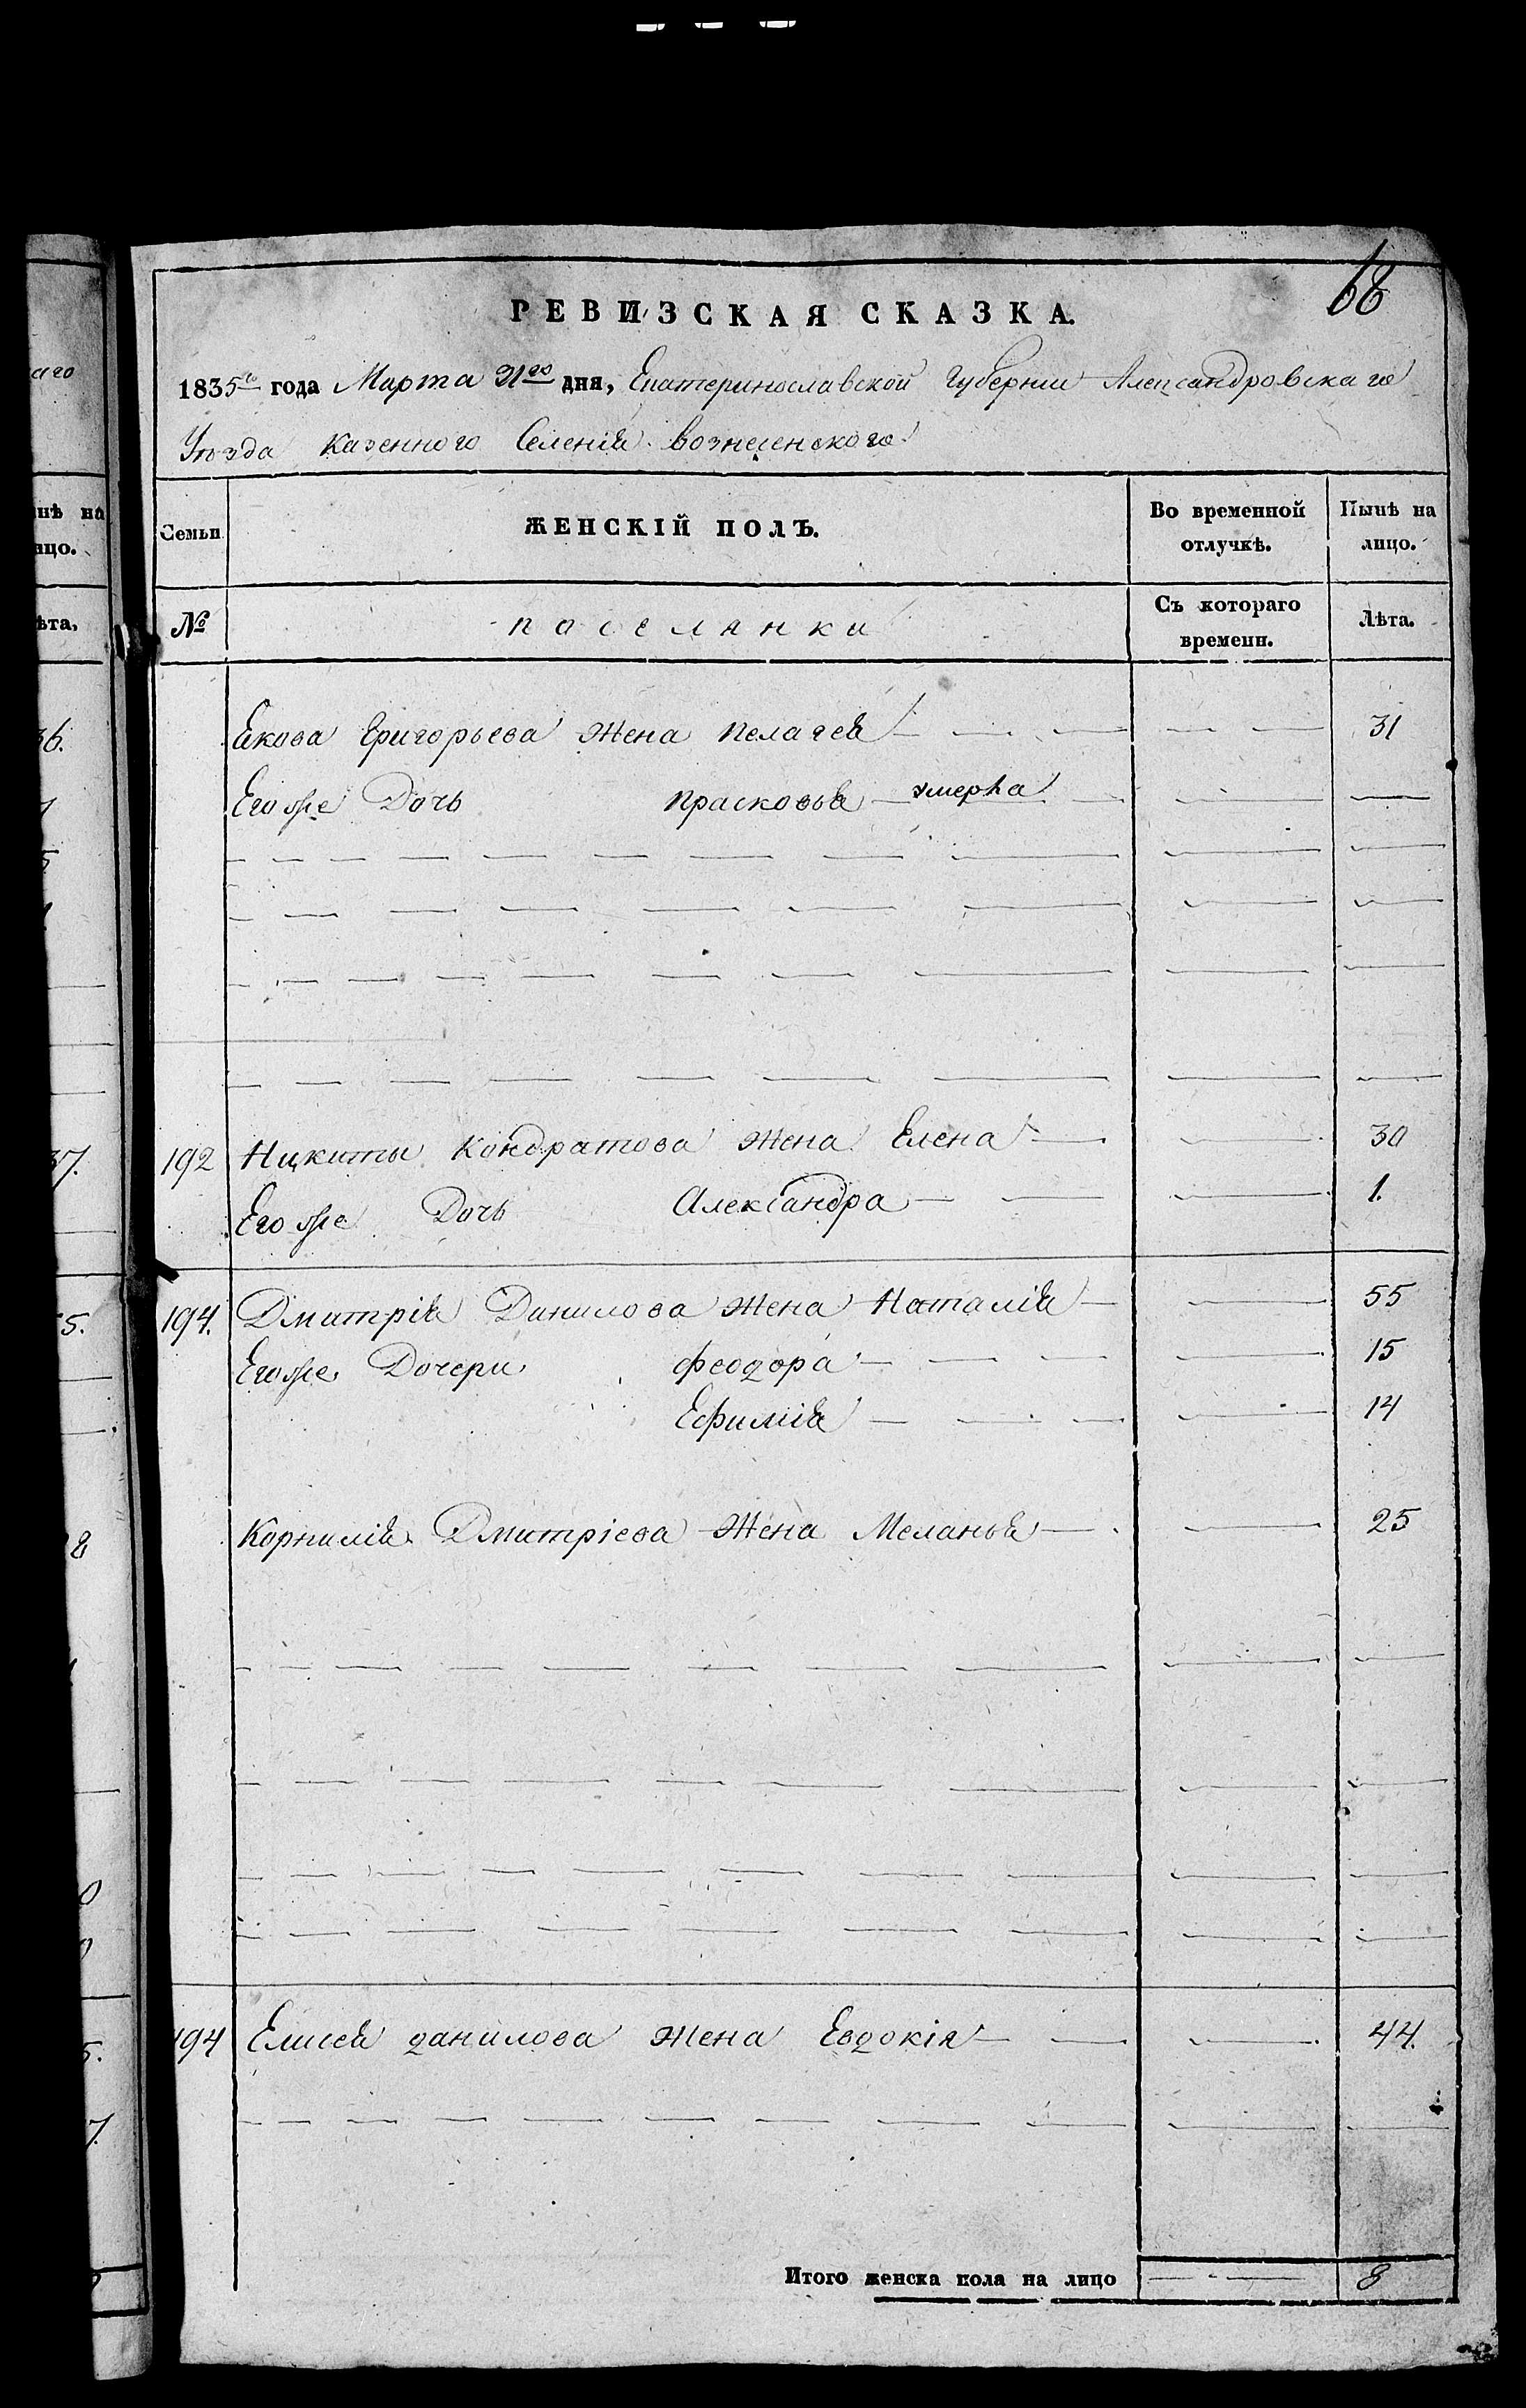 68
РЕВИЗСКАЯ СКАЗКА.
1835го года Марта 31го дня, Екатеринославской Губернии Александровскаго
Уѣзда Казенного Селенія Вознесенского
Семьи
ЖЕНСКІЙ ПОЛЪ.
Во временной отлучкѣ.
Нынѣ на лицо.
№
поселянки
Съ котораго времени.
Лѣта.
Якова Григорьева жена Пелагея 31
Егоже Дочь Прасковья умерла
192 Никиты Кондратова жена Елена 30
Егоже Дочь Александра 1.
194. Дмитрія Данилова жена Наталія 55
Егоже Дочери Феодора 15
Ефимія 14
Корнилія Дмитріева жена Меланья 25
194 Елисея Данилова жена Евдокія 44.
Итого женска пола на лицо 8